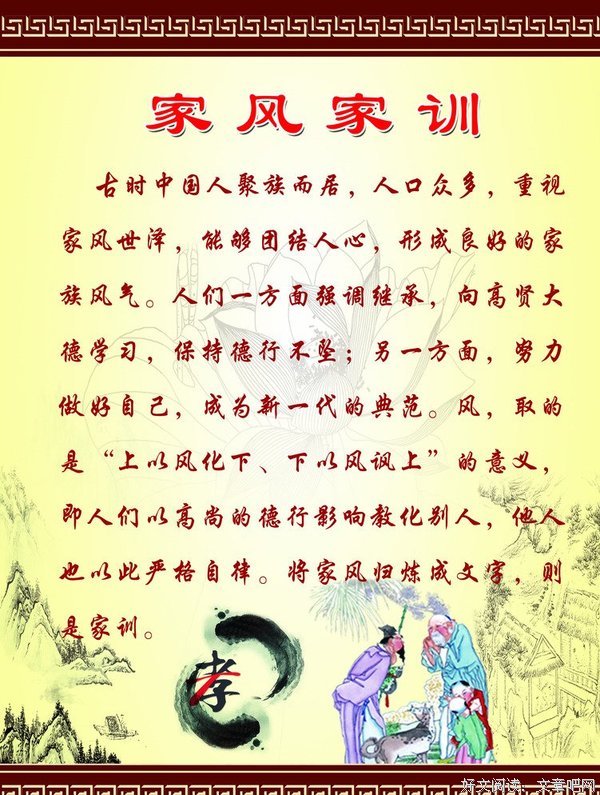 家风家训
古时中国人聚族而居，人口众多，重视
家风世泽，能够团结人心，形成良好的家
族风气。人们一方面强调继承，向高贤大
德学习，保持德行不坠；另一方面，努力
做好自己，成为新一代的典范。风，取的
是“上以风化下、下以风讽上”的意义，
即人们以高尚的德行影响教化别人，他人
也以此严格自律。将家风归炼成文字，则
是家训。
孝
好文阅读：文章吧网